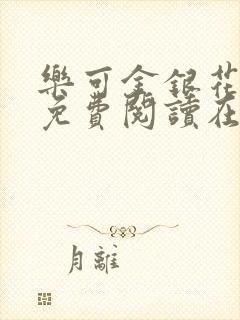 樂可金銀花
免費閱讀在
月離